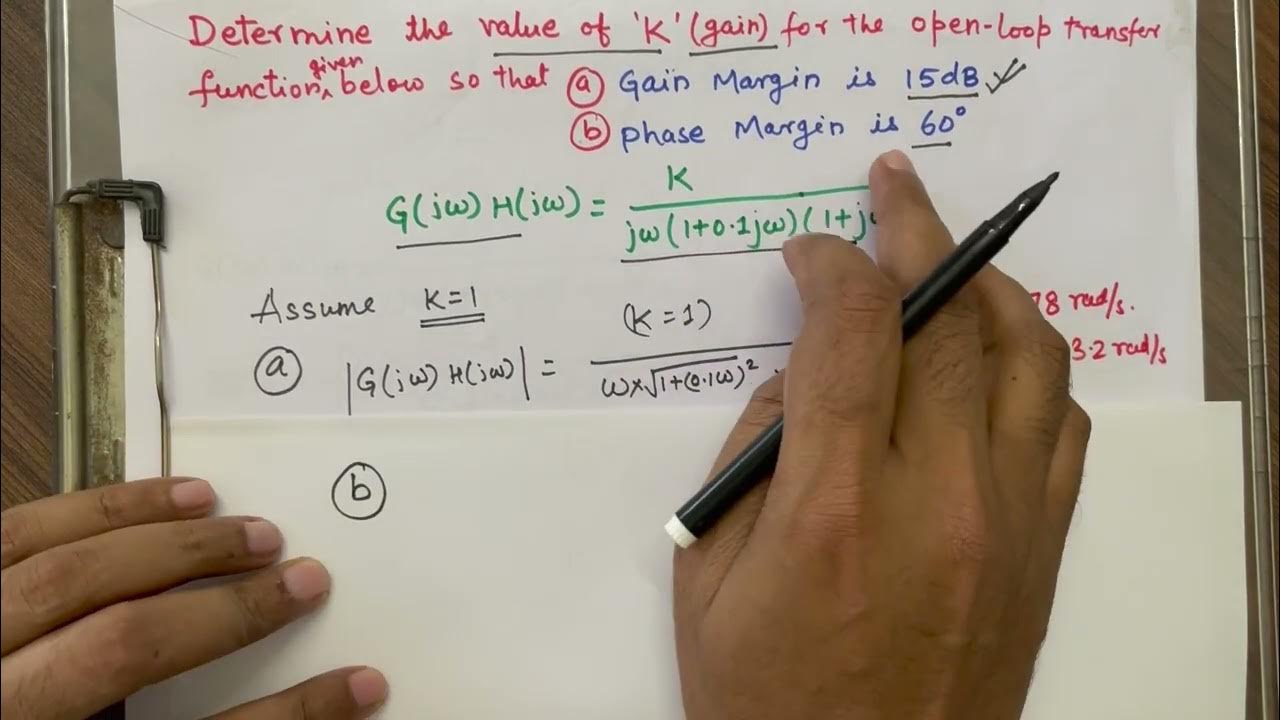 Determine the value of 'K' (gain) for the open-loop transfer
function, given below so that ⓐ Gain Margin is 15dB ✓
ⓑ phase Margin is 60°
K
G(jω) H(jω) = jω(1+0.1jω)(1+j
Assume K=1
(K=1)
78 rad/s.
3.2 rad/s
ⓐ |G(jω) H(jω)| =
ω×√1+(0.1ω)² .
ⓑ